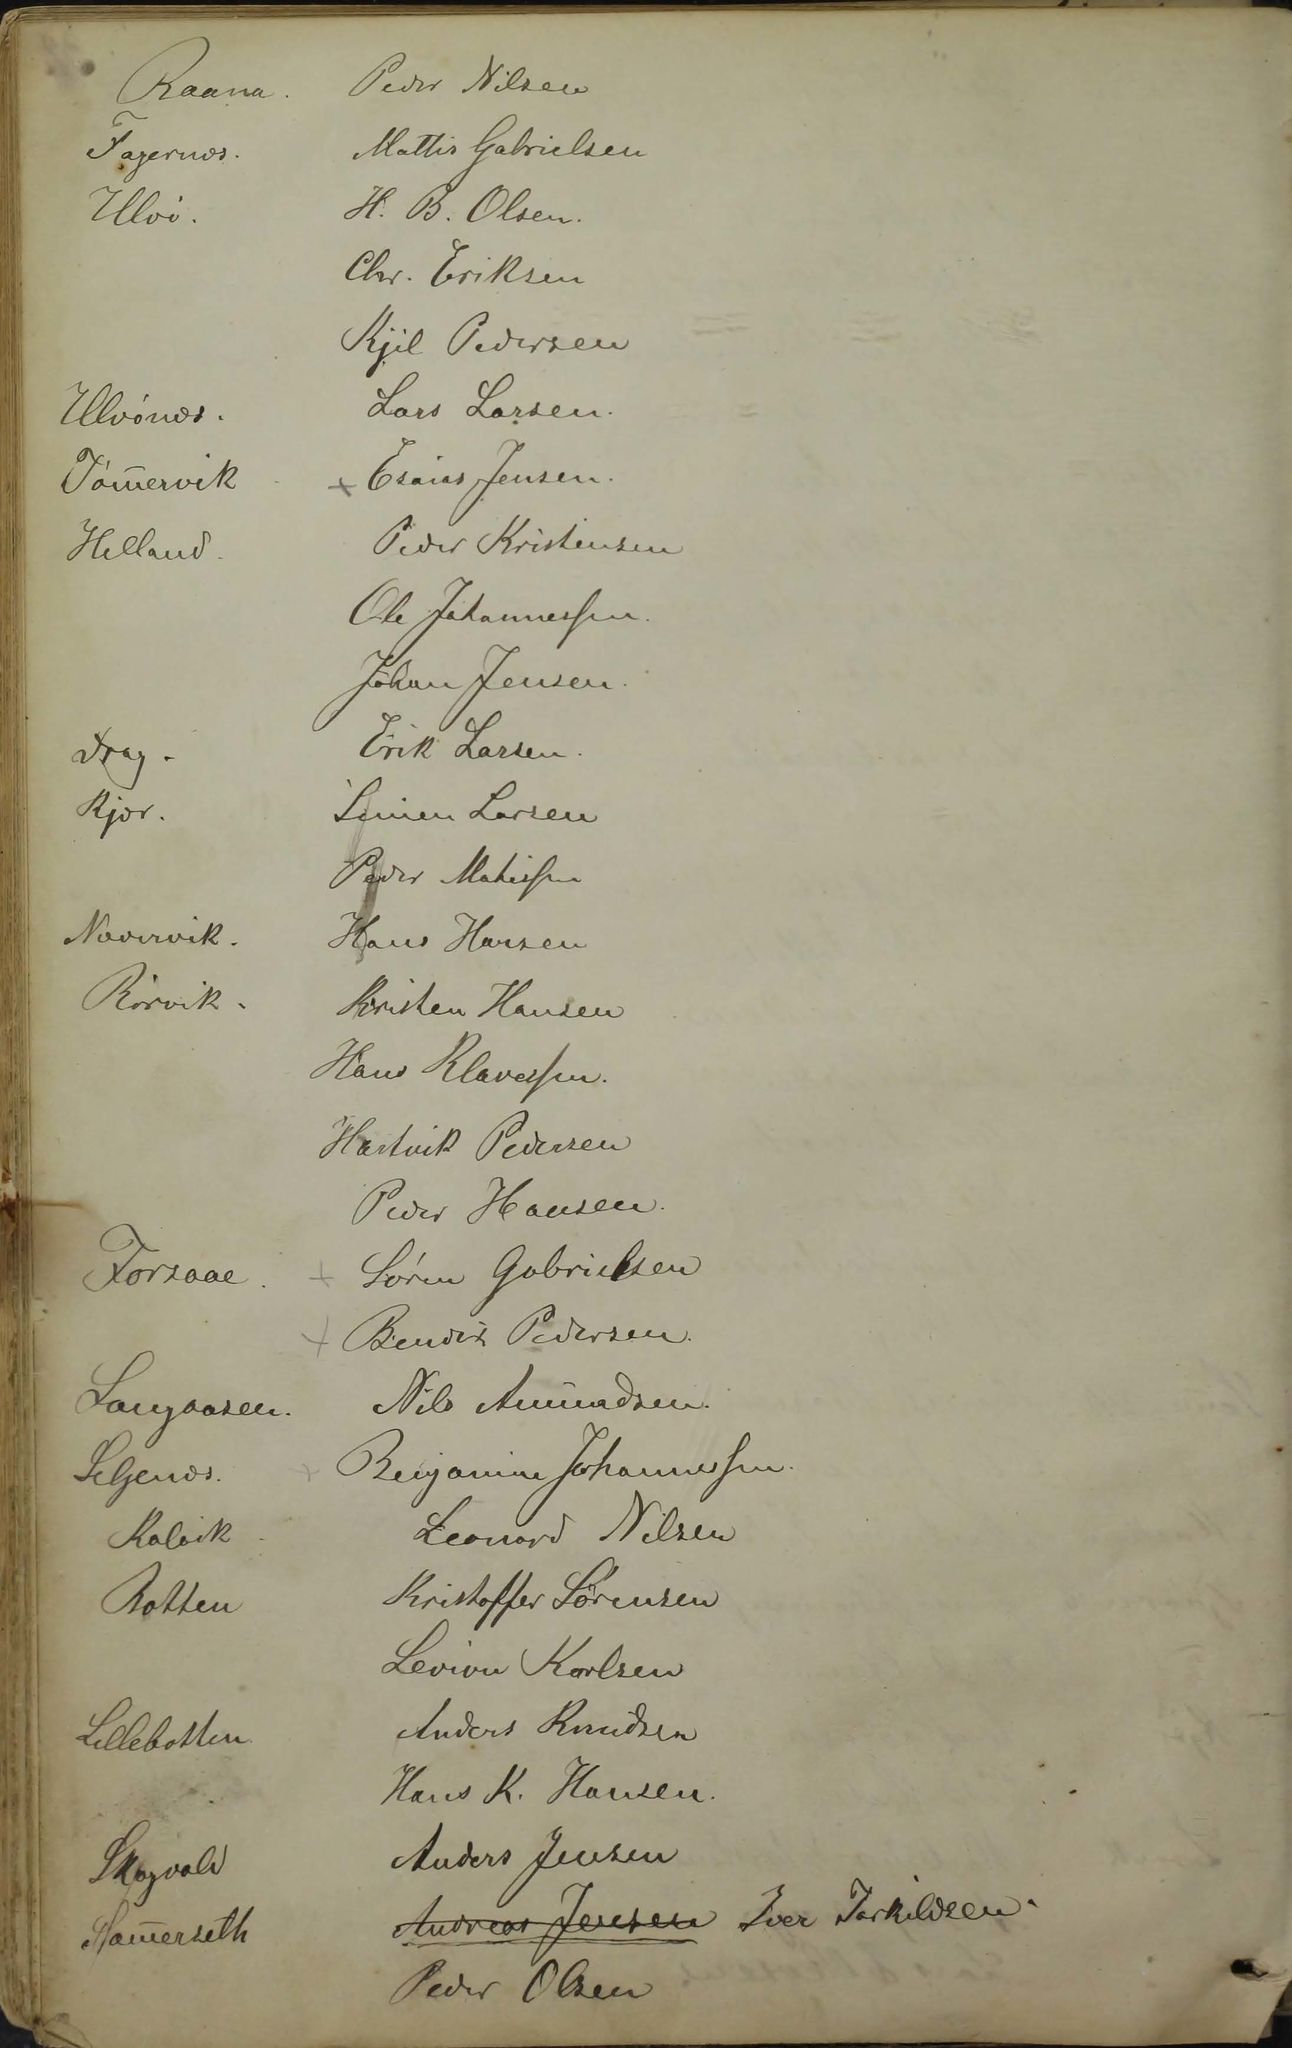 Raana. Peder Nilsen
Fagernæs. Mattis Gabrielsen
Ulvö. H. B. Olsen.
Chr. Eriksen
Kjil Pedersen
Ulvönæs. Lars Larsen.
Töm̄ervik × Esaias Jensen.
Helland. Peder Kristensen
Ole Johannessen.
Johan Jensen.
Drag. Erik Larsen.
Kjær. Simen Larsen
Peder Mathissen
Nævervik. Hans Hansen
Rörvik. Kristen Hansen
Hans Klavessen.
Hartvik Pedersen
Peder Hansen.
Forsaae. × Sören Gabrielsen
× Bendix Pedersen.
Langaasen. Nils Amundsen.
Seljenæs. × Benjamin Johannessen.
Kalvik Leonard Nilsen
Botten Kristoffer Sörensen
Karlsen
Lillebotten Anders Knudsen
Hans K. Hansen.
Skogvold Anders Jensen
Ham̄erseth Andreas Jensen Iver Torkildsen.
Peder Olsen